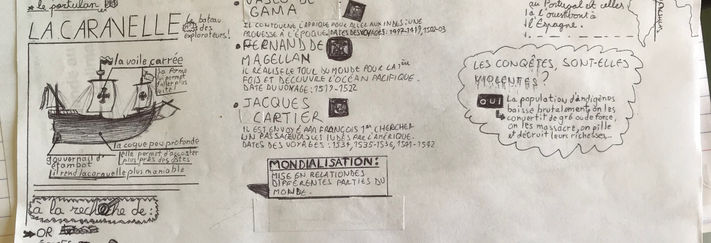 le portulan
LA CARANELLE
le bateau
des
explorateurs!
la voile carrée
sa forme
lui permet
d'aller plus
vite
la coque peu profonde
elle permet d'accoster
plus près des côtes
gouvernail d'
étambot
il rend la caravelle plus maniable
à la recherche de:
OR
VASCO DE
GAMA
IL CONTOURNE L'AFRIQUE POUR ALLER AUX INDES: UNE
PROUESSE A L'ÉPOQUE. DATES DES VOYAGES: 1497-1499, 1502-03
• FERNAND DE
MAGELLAN
IL RÉALISE LE TOUR DU MONDE POUR LA 1ère
FOIS ET DÉCOUVRE L'OCÉAN PACIFIQUE.
DATE DU VOYAGE: 1519-1522
• JACQUES
CARTIER
IL EST ENVOYÉ PAR FRANÇOIS 1er CHERCHER
UN PASSAGE VERS LES INDES PAR L'AMÉRIQUE.
DATES DES VOYAGES: 1534, 1535-1536, 1541-1542
MONDIALISATION:
MISE EN RELATION DES
DIFFÉRENTES PARTIES DU
MONDE.
au Portugal et celles
à l'ouest iront à
l'Espagne.
LES CONQUÊTES, SONT-ELLES
VIOLENTES?
oui
La population d'indigènes
baisse brutalement. On les
convertit de gré ou de force,
on les massacre, on pille
et détruit leurs richesses.